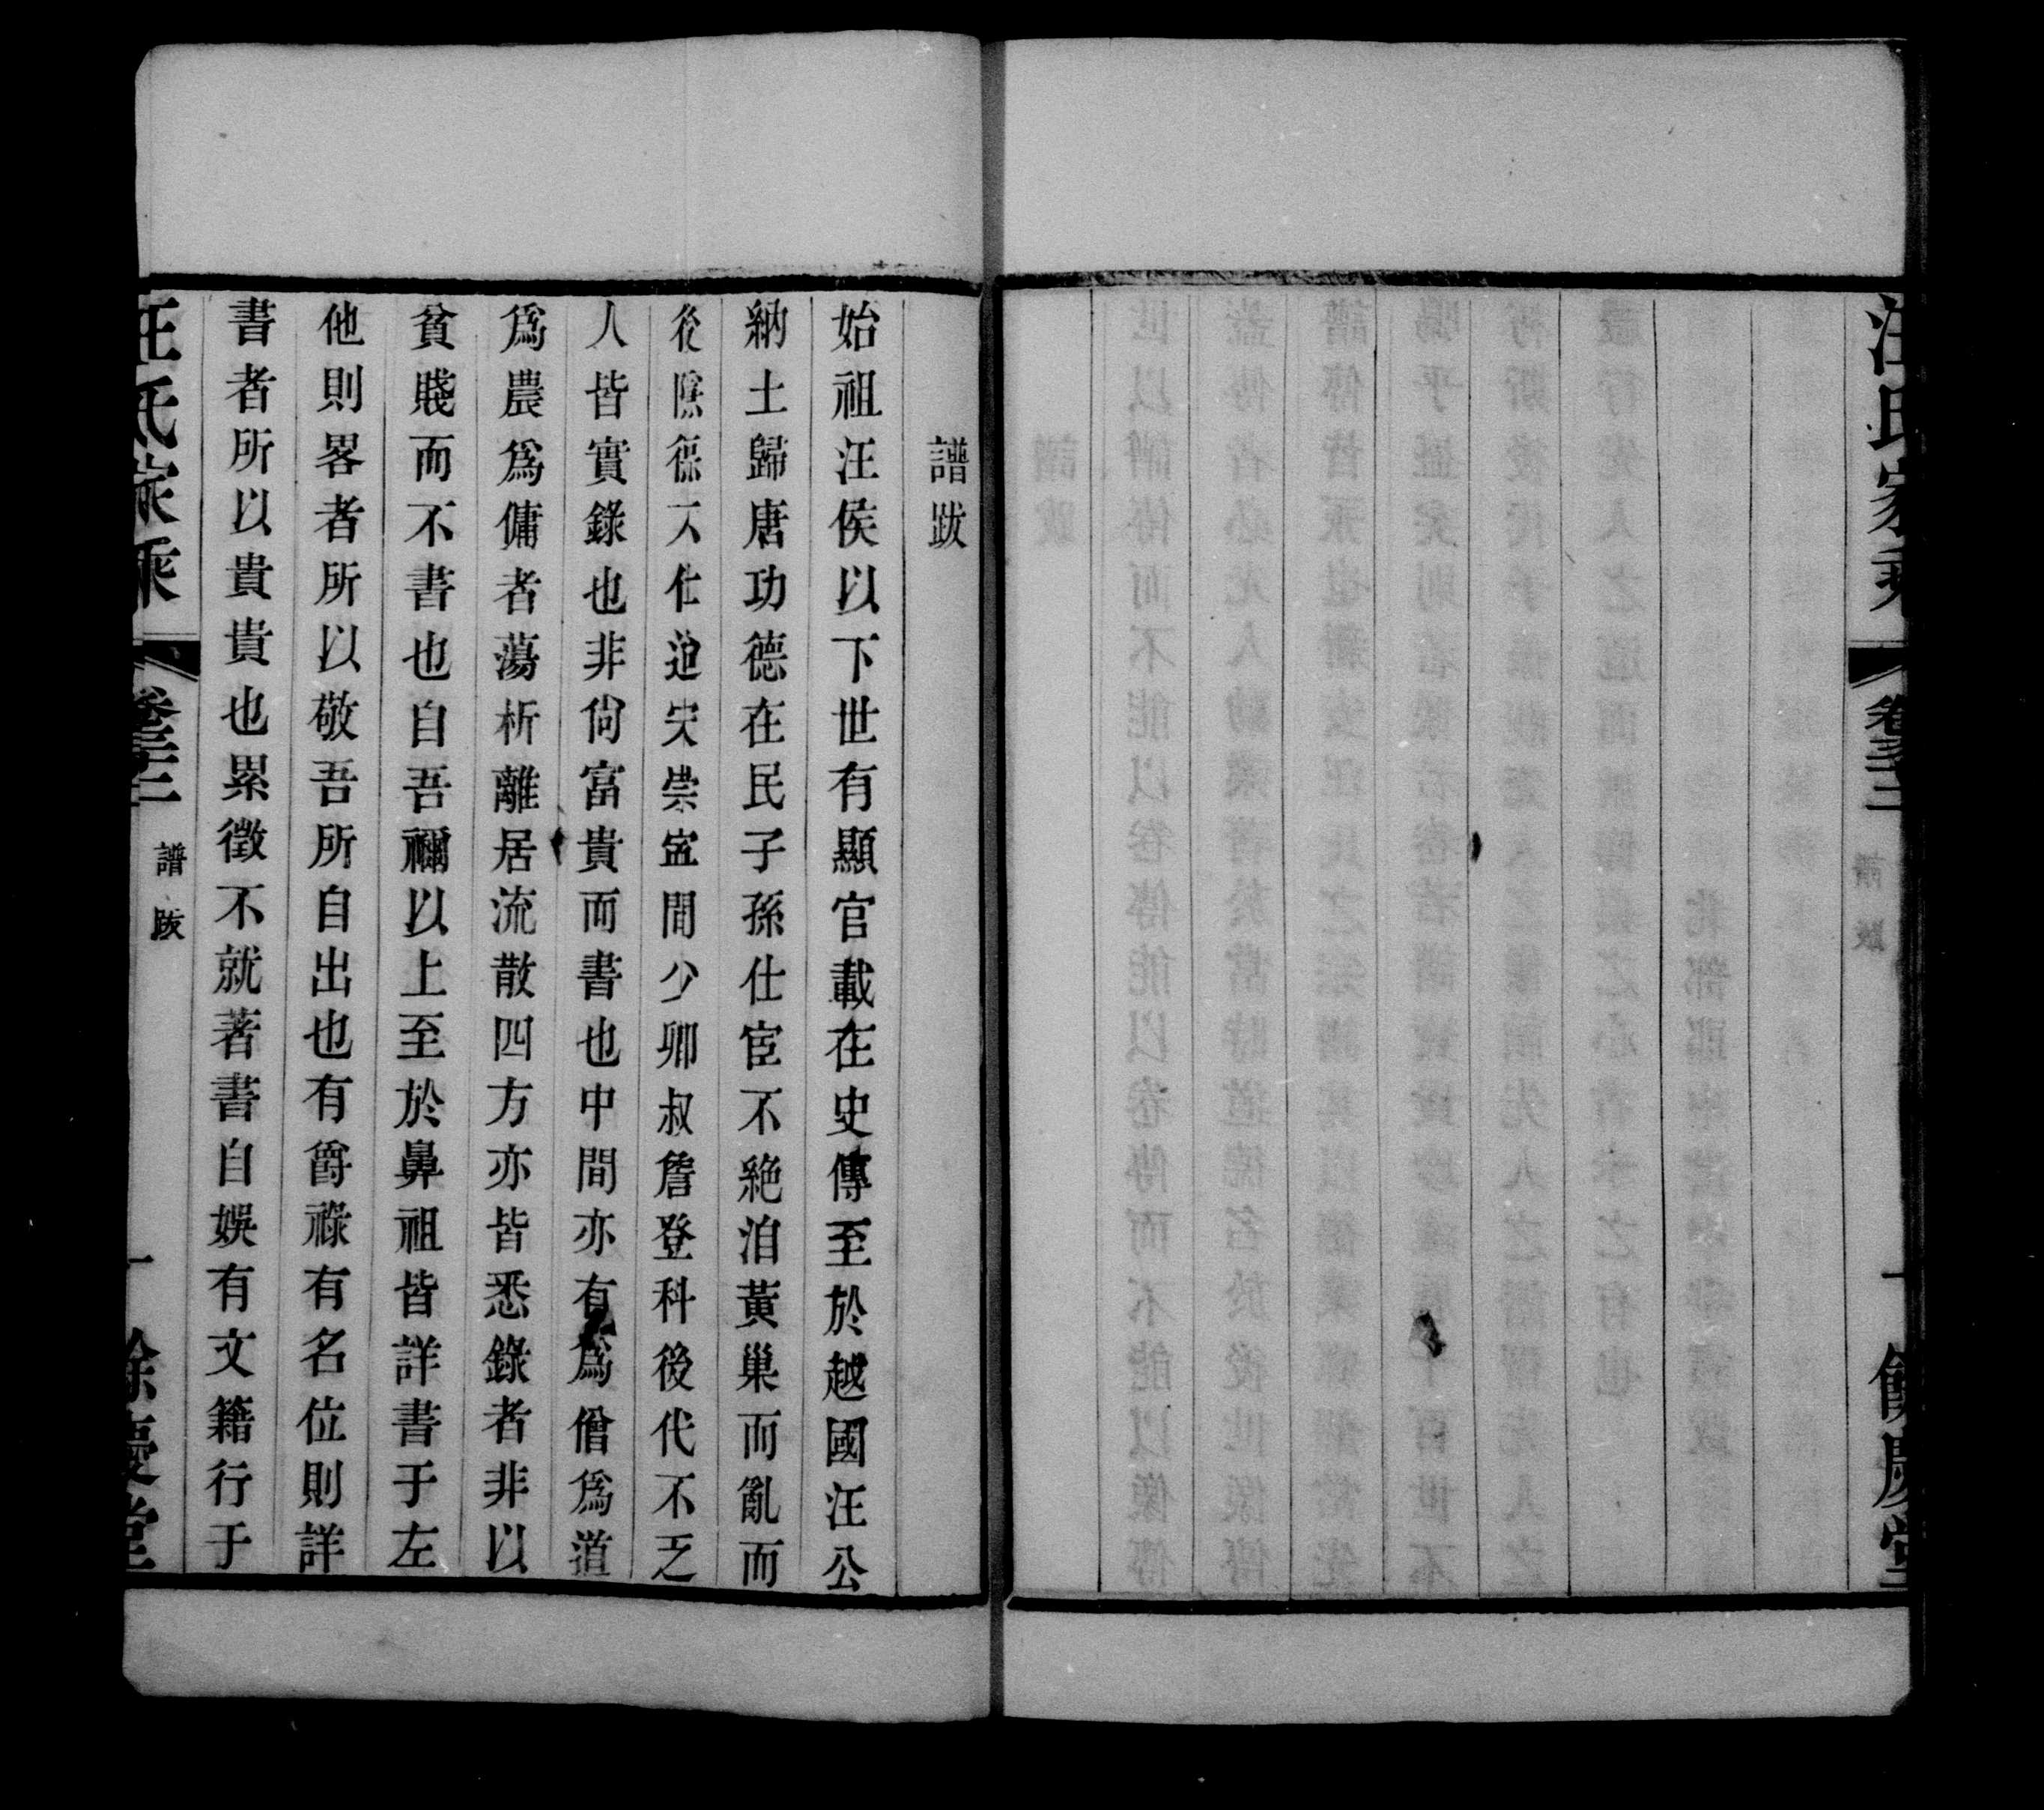 汪氏家乘 卷三十二 譜跋 一 餘慶堂
譜跋
始祖汪侯以下世有顯官載在史傳至於越國汪公
納土歸唐功德在民子孫仕宦不絶洎黃巢而亂而
後隱德不仕迨宋崇寍間少卿叔詹登科後代不乏
人皆實錄也非尙富貴而書也中間亦有爲僧爲道
爲農爲傭者蕩析離居流散四方亦皆悉錄者非以
貧賤而不書也自吾禰以上至於鼻祖皆詳書于左
他則畧者所以敬吾所自出也有爵祿有名位則詳
書者所以貴貴也累徵不就著書自娛有文籍行于
汪氏家乘 卷三十二 譜跋 一 餘慶堂